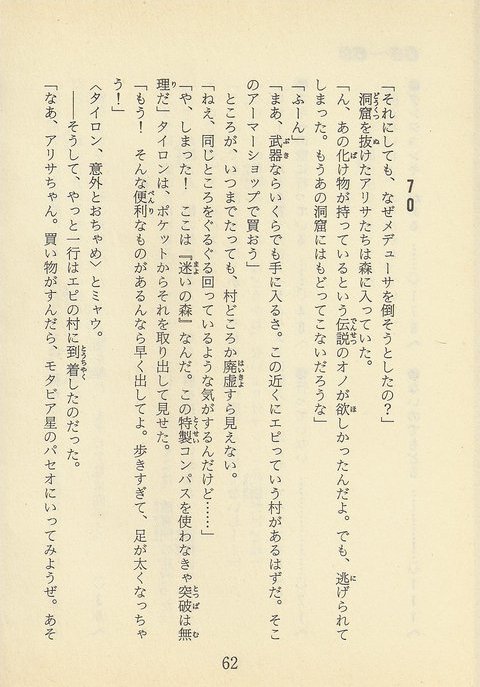 70
「それにしても、なぜメデューサを倒そうとしたの？」
洞窟を抜けたアリサたちは森に入っていた。
「ん、あの化け物が持っているという伝説のオノが欲しかったんだよ。でも、逃げられて
しまった。もうあの洞窟にはもどってこないだろうな」
「ふーん」
「まあ、武器ならいくらでも手に入るさ。この近くにエピっていう村があるはずだ。そこ
のアーマーショップで買おう」
ところが、いつまでたっても、村どころか廃虚すら見えない。
「ねえ、同じところをぐるぐる回っているような気がするんだけど……」
「や、しまった！　ここは『迷いの森』なんだ。この特製コンパスを使わなきゃ突破は無
理だ」タイロンは、ポケットからそれを取り出して見せた。
「もう！　そんな便利なものがあるんなら早く出してよ。歩きすぎて、足が太くなっちゃ
う！」
〈タイロン、意外とおちゃめ〉とミャウ。
――そうして、やっと一行はエピの村に到着したのだった。
「なあ、アリサちゃん。買い物がすんだら、モタビア星のパセオにいってみようぜ。あそ
62